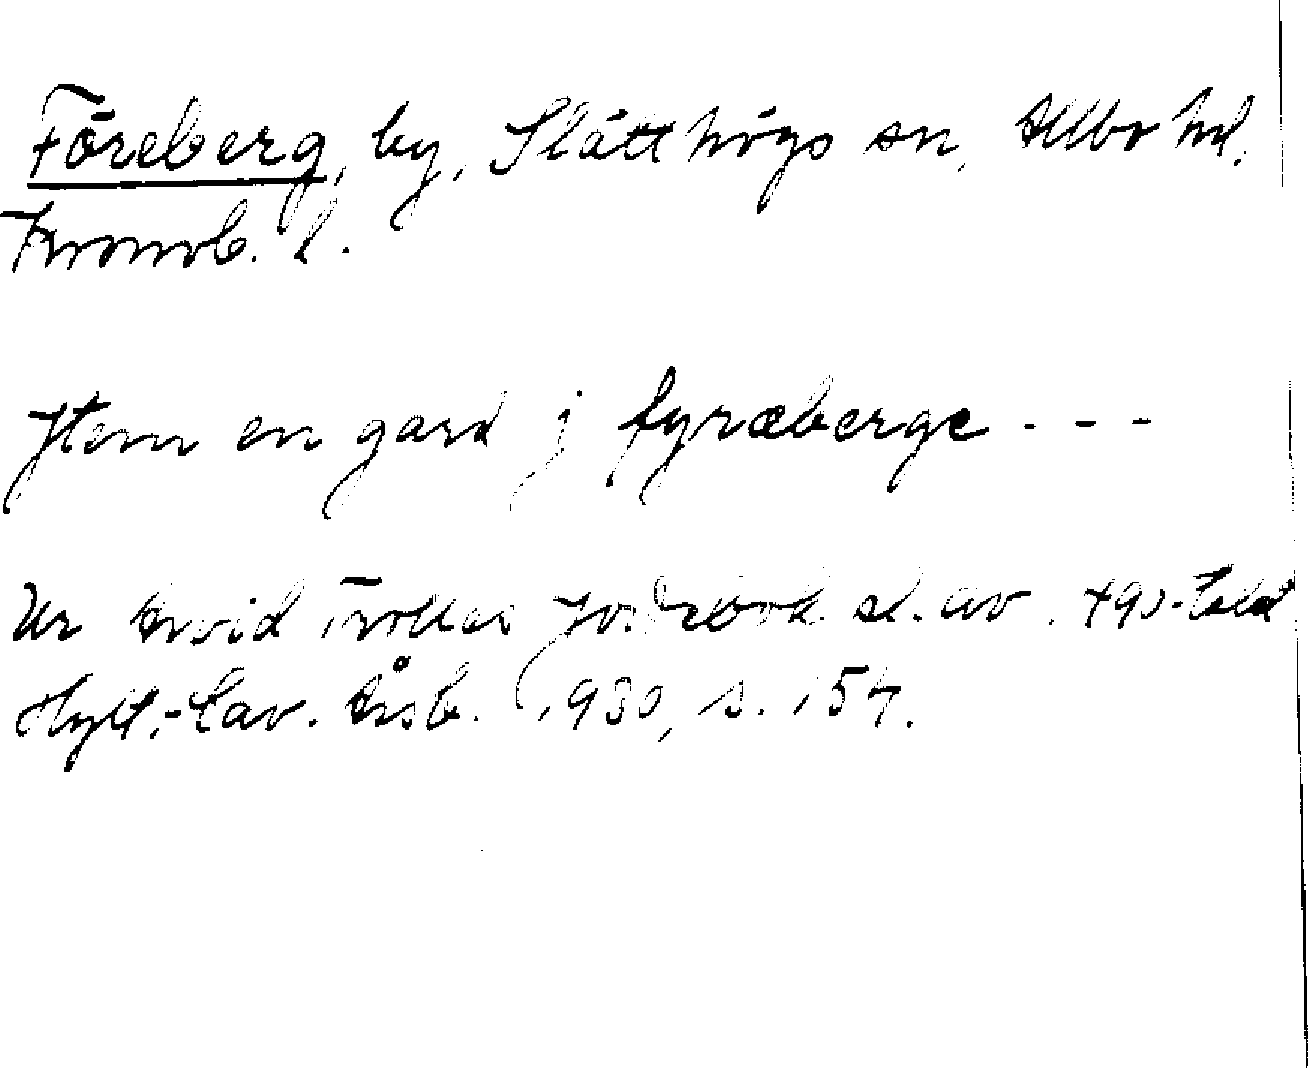 Föreberg, by, Slätthögs sn, Allbo hd,
Kronob. l.
Jtem en gard j fyræberge - - -
Ur Arvid Trolles Jordebok sl. av 1490-talet
Hylt.-Cav. Årsb. 1930, s. 154.